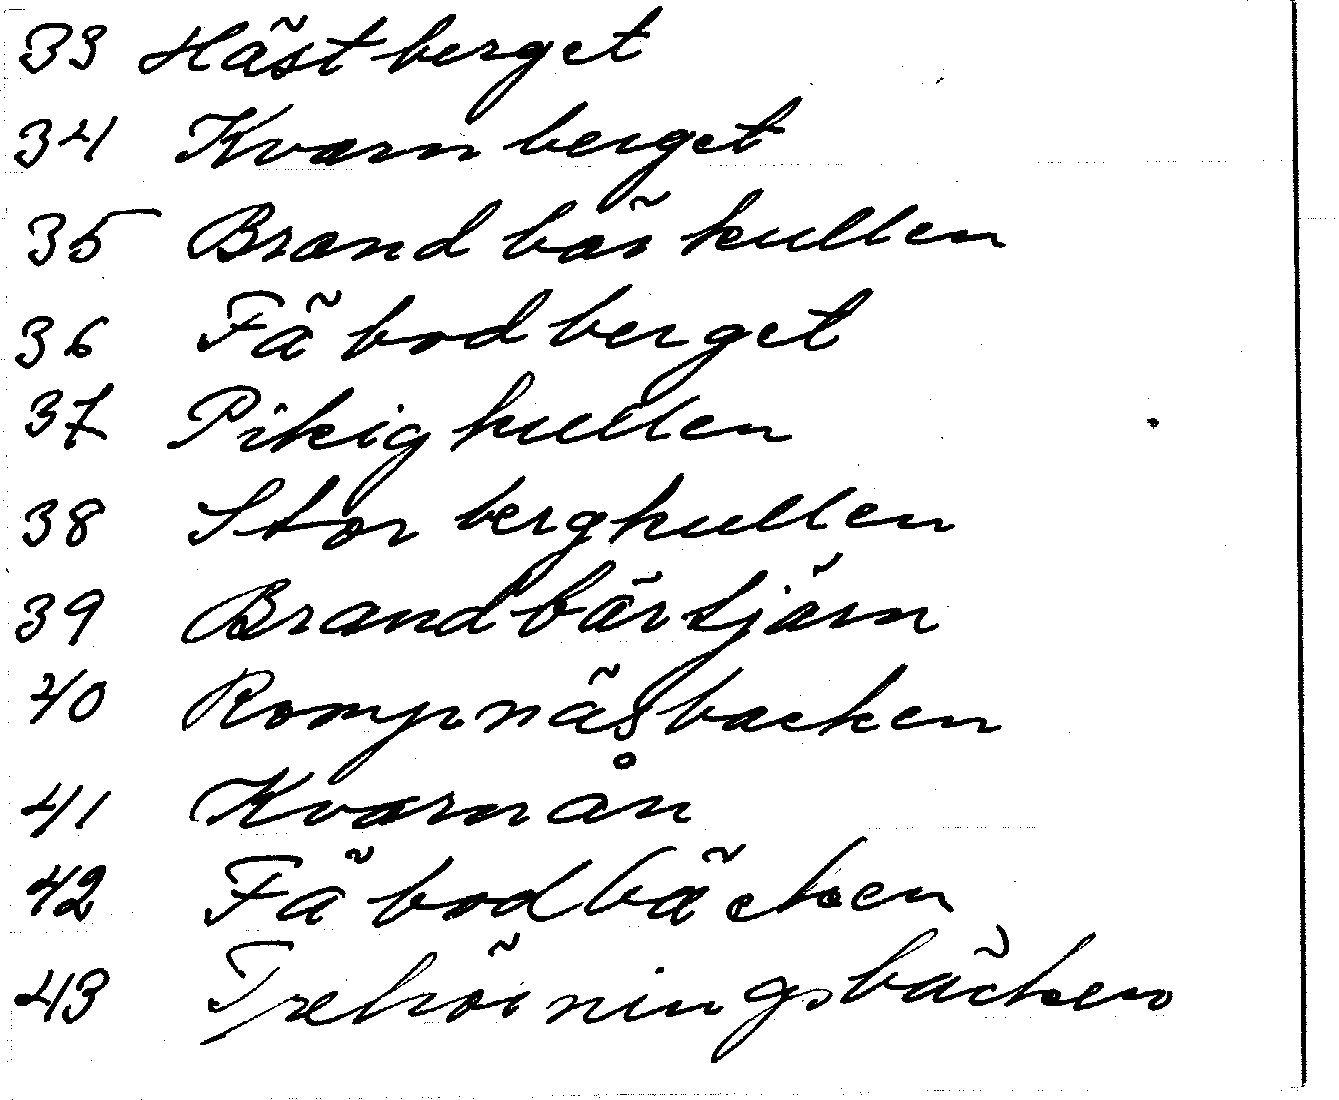 33 Hästberget
34 Kvarnberget
35 Brandbärkullen
36 Fäbodberget
37 Pikigkullen
38 Storbergkullen
39 Brandbärtjärn
40 Rompnäsbacken
41 Kvarnån
42 Fäbodbäcken
43 Trehörningsbäcken